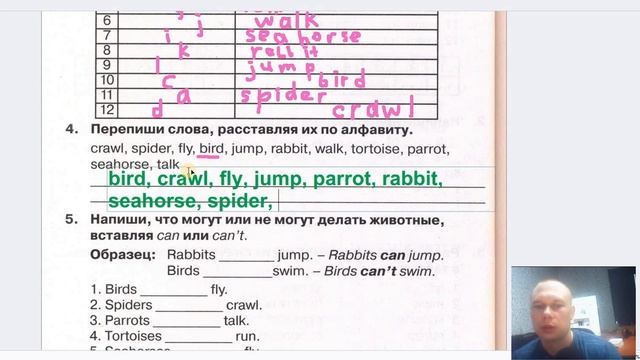 6 j walk
7 i seahorse
8 k rabbit
9 l jump
10 c bird
11 a spider
12 d crawl
4. Перепиши слова, расставляя их по алфавиту.
crawl, spider, fly, bird, jump, rabbit, walk, tortoise, parrot,
seahorse, talk
bird, crawl, fly, jump, parrot, rabbit,
seahorse, spider,
5. Напиши, что могут или не могут делать животные,
вставляя can или can't.
Образец: Rabbits ________ jump. – Rabbits can jump.
Birds __________ swim. – Birds can't swim.
1. Birds __________ fly.
2. Spiders __________ crawl.
3. Parrots __________ talk.
4. Tortoises __________ run.